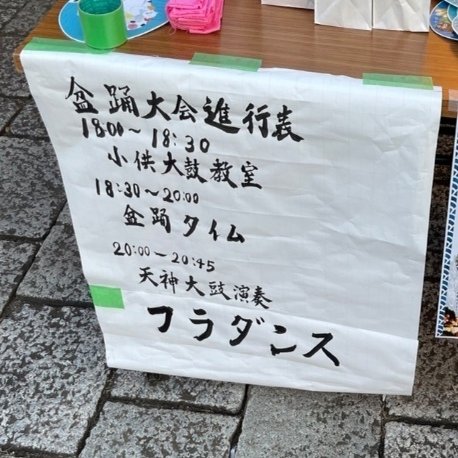 盆踊大会進行表
18:00〜18:30
小供太鼓教室
18:30〜20:00
盆踊タイム
20:00〜20:45
天神太鼓演奏
フラダンス